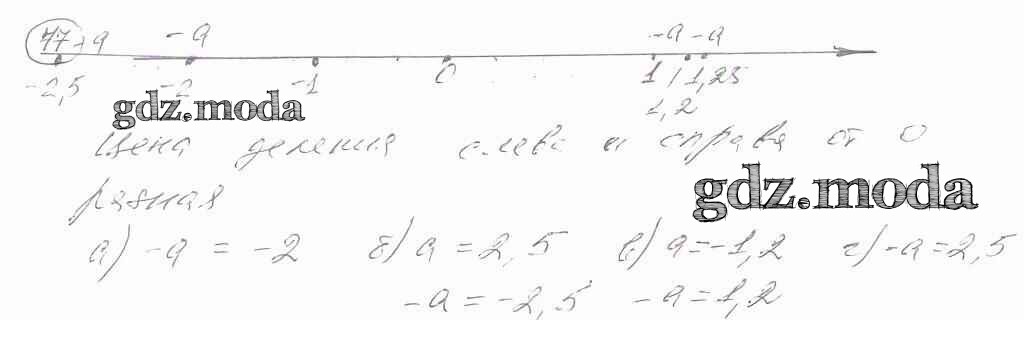 77 -а -а -а -а
-2,5 -2 -1 0 1 1,25
1,2
gdz.moda
Цена деления слева и справа от 0
gdz.moda
разная
а) -а = -2 б) а = 2,5 в) а = -1,2 г) -а = 2,5
-а = -2,5 -а = 1,2